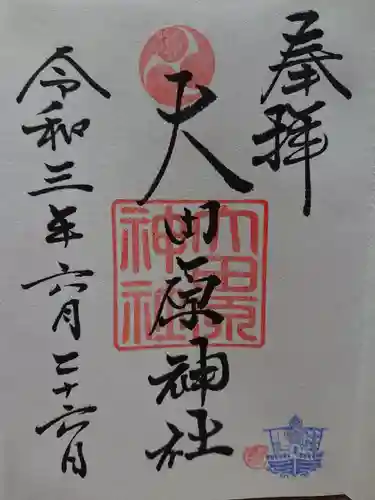 奉拝
大田原神社
令和三年六月二十六日
大田原
神社